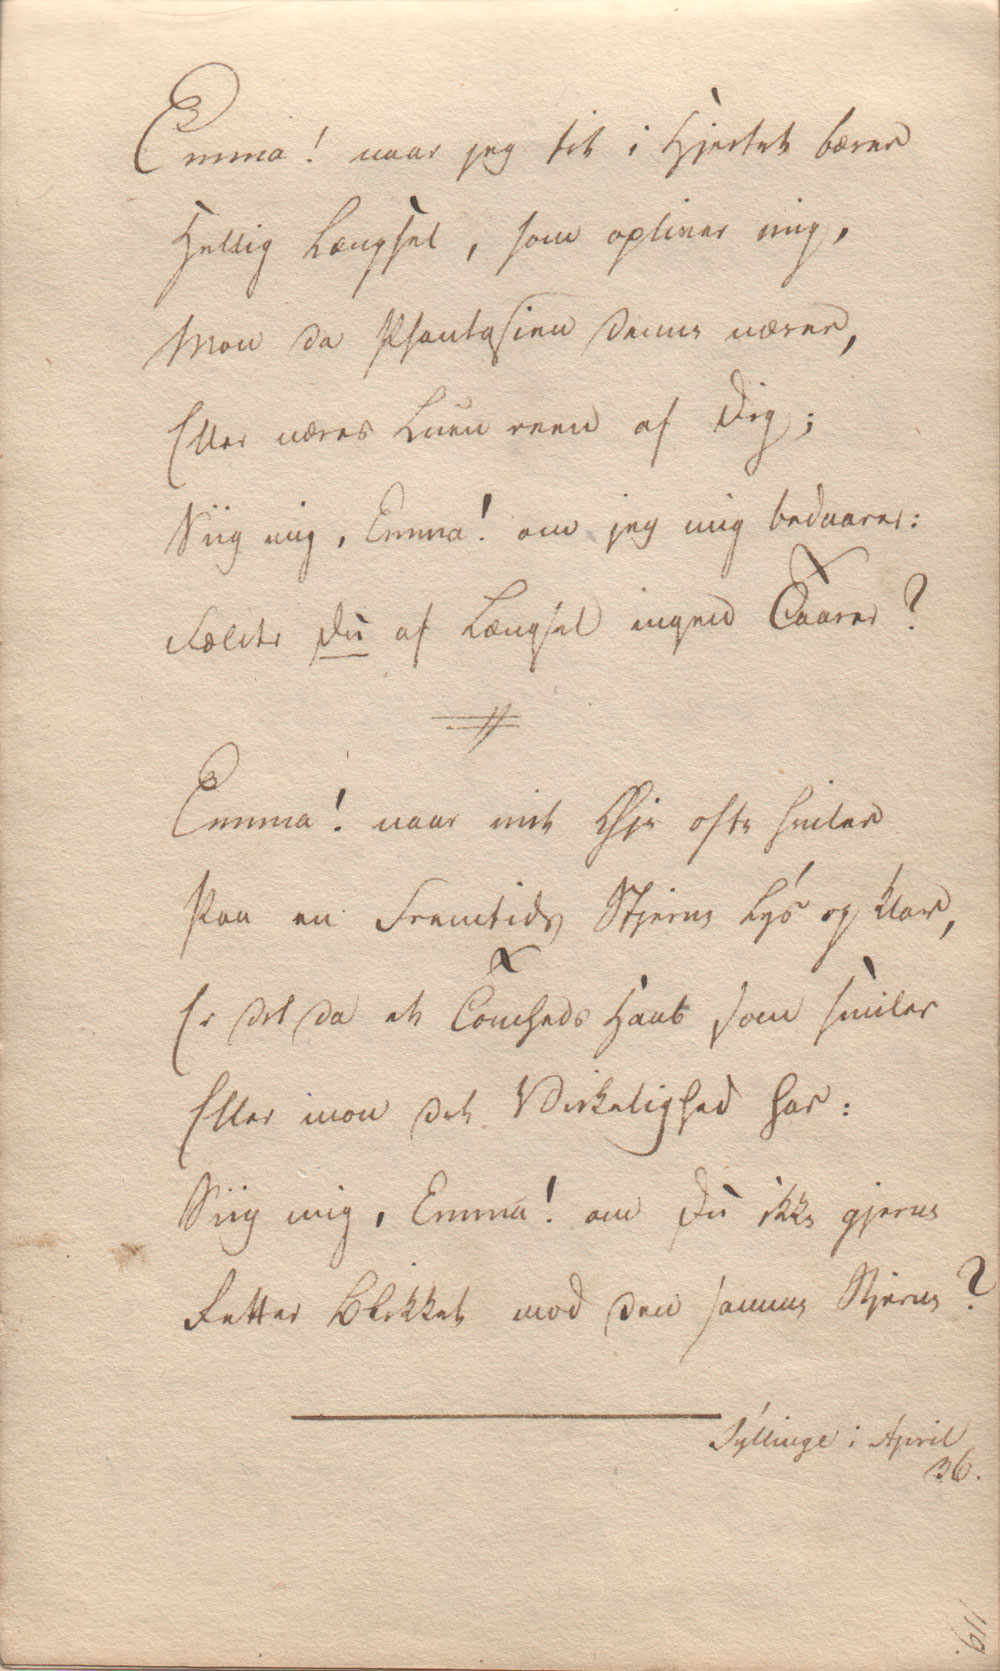 Emma! naar jeg tit i Hjertet bærer
Hellig Længsel, som opliver mig,
Mon da Phantasien denne nærer,
Eller næres Luen reen af Dig;
Siig mig, Emma! om jeg mig bedaarer:
Fældte Du af Længsel ingen Taarer?
Emma! naar mit Øje ofte hviler
Paa en Fremtids Stjerne lys og klar,
Er det da et Tomheds Haab som smiler
Eller mon det Virkelighed har:
Siig mig, Emma! om Du ikke gjerne
Fetter Blikket mod den samme Stjerne?
Syllinge i April
36.
119.